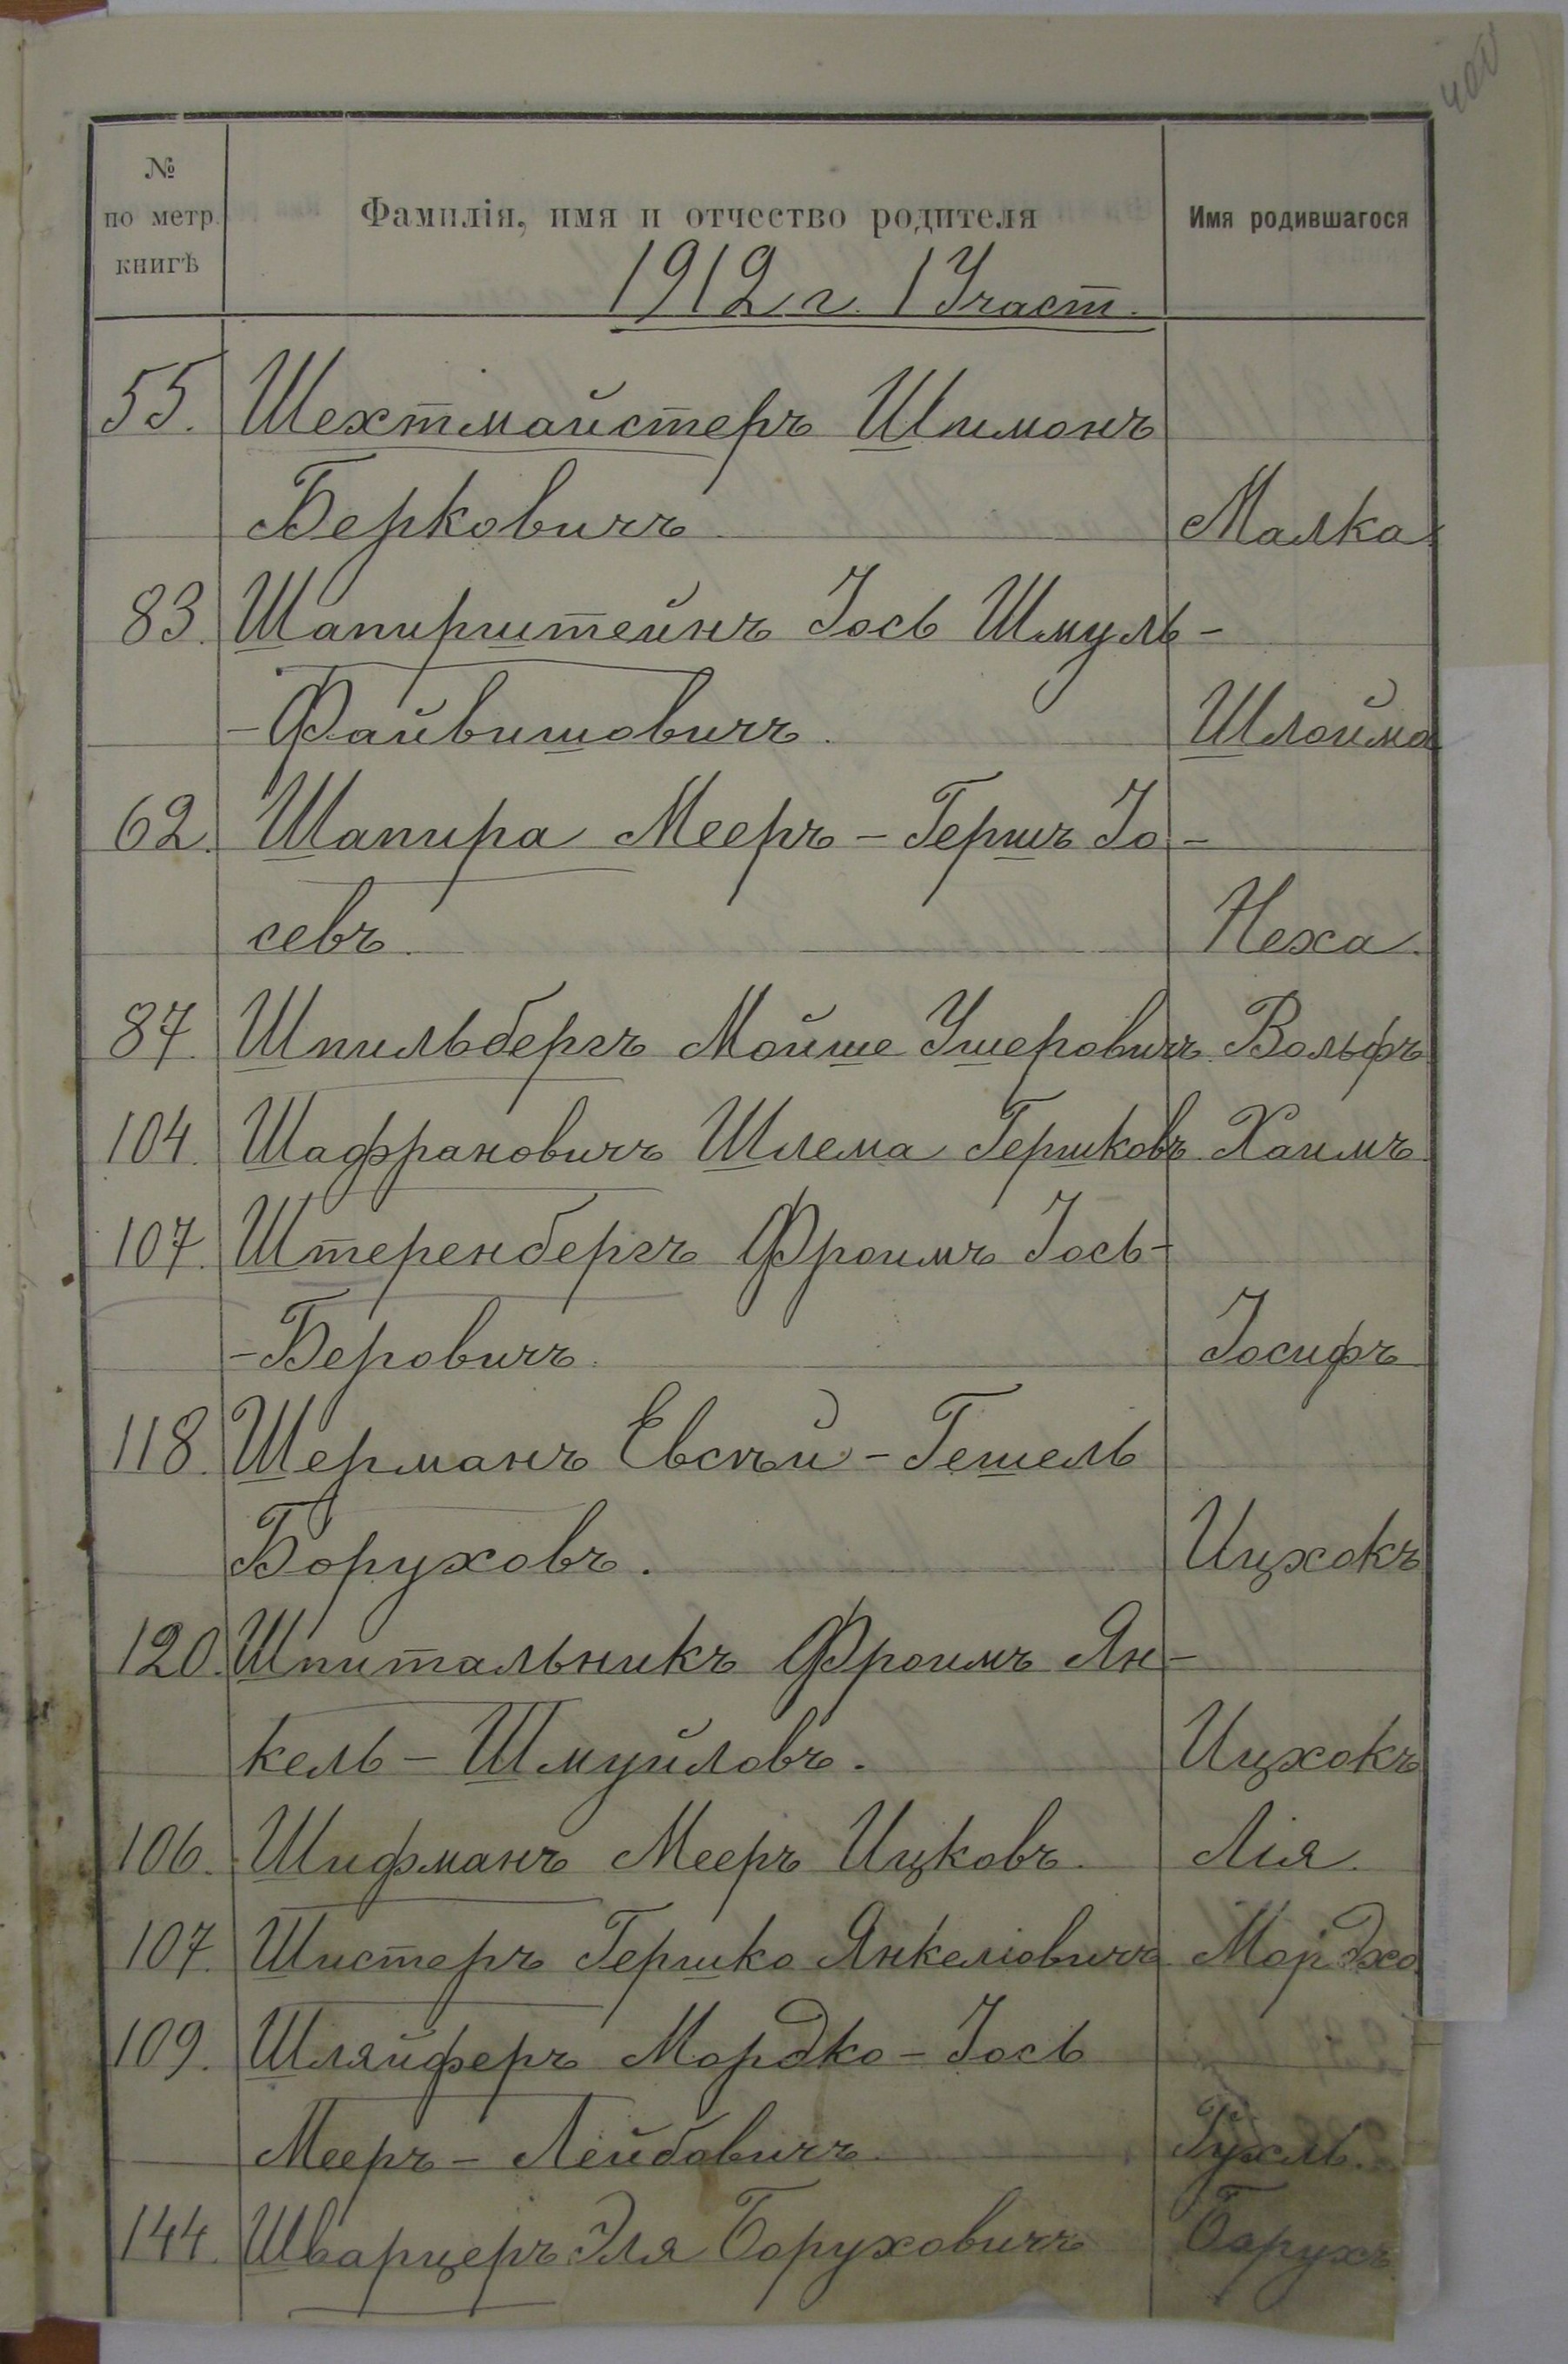 № по метр. книгѣ | Фамилія, имя и отчество родителя | Имя родившагося
1912 г. 1 Участ.
55. Шехтмайстеръ Шимонъ
Берковичъ Малка
83. Шапирштейнъ Іось Шмуль-
-Файвишовичъ. Шлойма
62. Шапира Мееръ-Гершъ Іо-
севъ. Неха.
87. Шпильбергъ Мойше Ушеровичъ Вольфъ
104. Шафрановичъ Шлема Гершковъ Хаимъ
107. Штеренбергъ Фроимъ Іось-
-Беровичъ. Іосифъ
118. Шерманъ Евсѣй-Гешель
Боруховъ. Ицхокъ
120. Шпитальникъ Фроимъ Ян-
кель-Шмуйловъ. Ицхокъ
106. Шифманъ Мееръ Ицковъ. Лія.
107. Шистеръ Гершко Янкеліовичъ Мордхо
109. Шляйферъ Мордко-Іось
Мееръ-Лейбовичъ Рухль.
144. Шварцеръ Эля Боруховичъ Борухъ